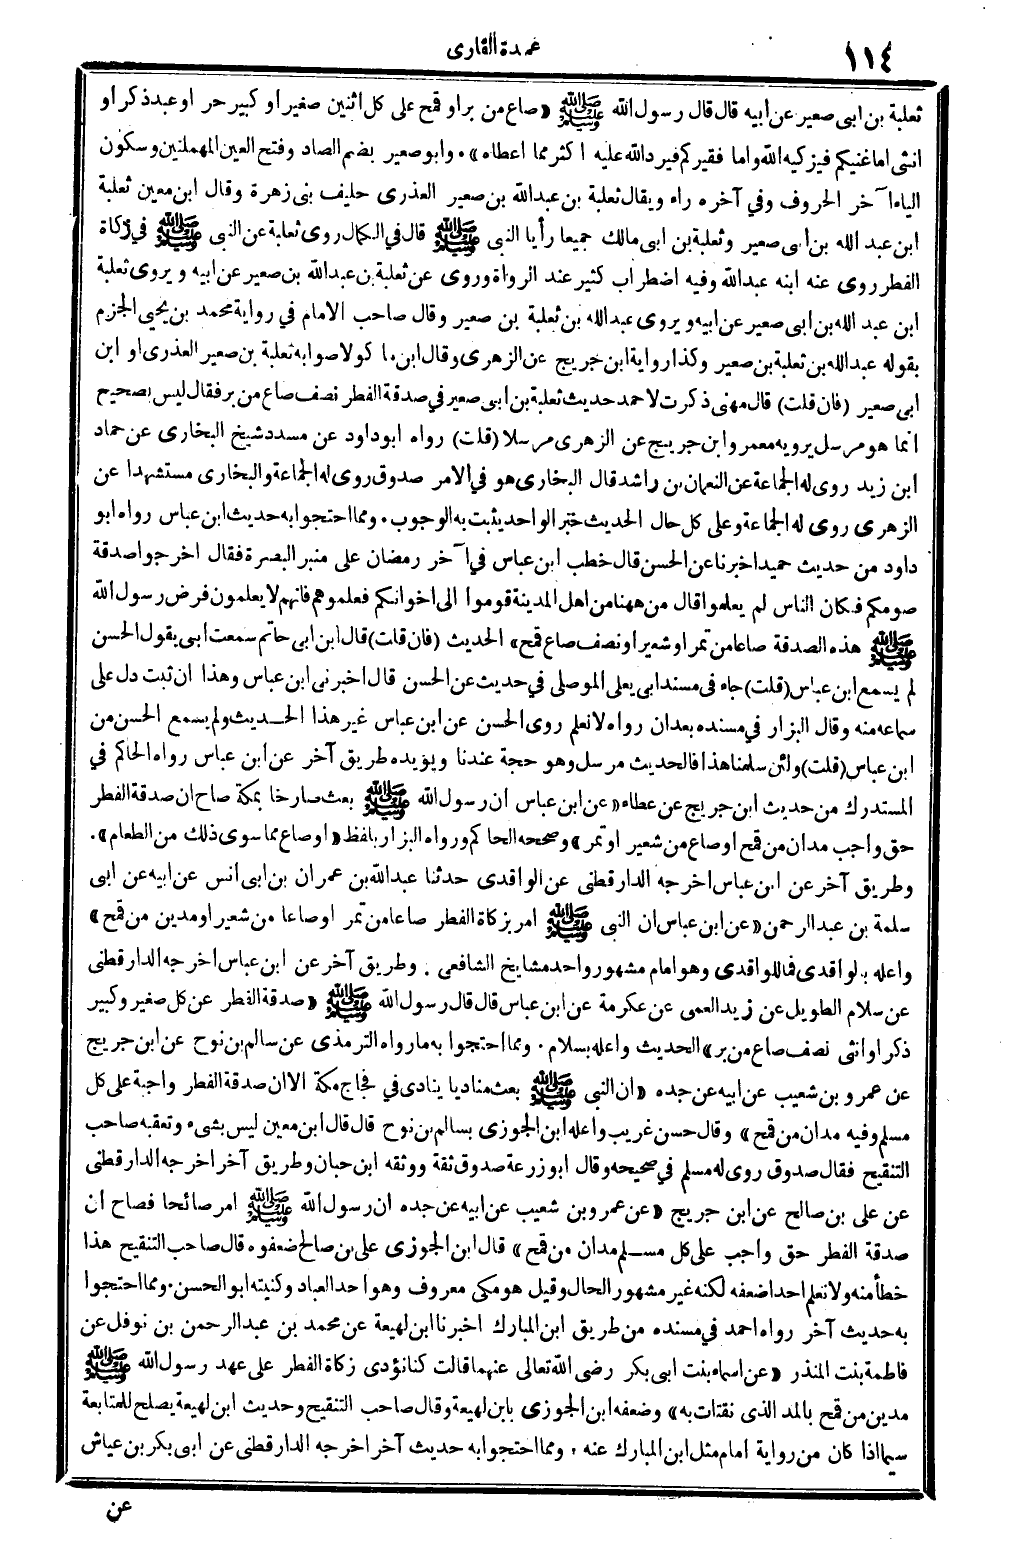 عمدة القارى
١١٤
ثعلبة بن ابى صعير عن ابيه قال قال رسول الله ﷺ «صاع من بر او قمح على كل اثنين صغير او كبير حر او عبد ذكر او
انثى اما غنيكم فيزكيه الله واما فقيركم فيرد الله عليه اكثر مما اعطاه» . وابو صعير بضم الصاد وفتح العين المهملتين وسكون
الياء آخر الحروف وفي آخره راء ويقال ثعلبة بن عبدالله بن صعير العذرى حليف بنى زهرة وقال ابن معين ثعلبة
ابن عبد الله بن ابى صعير وثعلبة بن ابى مالك جميعا رأيا النبى ﷺ قال في الكمال روى ثعلبة عن النبى ﷺ في زكاة
الفطر روى عنه ابنه عبدالله وفيه اضطراب كثير عند الرواة وروى عن ثعلبة بن عبدالله بن صعير عن ابيه ويروى ثعلبة
ابن عبد الله بن ابى صعير عن ابيه ويروى عبدالله بن ثعلبة بن صعير وقال صاحب الامام في رواية محمد بن يحيى الجزم
بقوله عبدالله بن ثعلبة بن صعير وكذا رواية ابن جريج عن الزهرى وقال ابن ماكولا صوابه ثعلبة بن صعير العذرى او ابن
ابى صعير (فان قلت) قال مهنى ذكرت لاحمد حديث ثعلبة بن ابى صعير في صدقة الفطر نصف صاع من بر فقال ليس بصحيح
انما هو مرسل يرويه معمر وابن جريج عن الزهرى مرسلا (قلت) رواه ابو داود عن مسدد شيخ البخارى عن حماد
ابن زيد روى له الجماعة عن النعمان بن راشد قال البخارى هو في الامر صدوق روى له الجماعة والبخارى مستشهدا عن
الزهرى روى له الجماعة وعلى كل حال الحديث خبر الواحد يثبت به الوجوب . ومما احتجوا به حديث ابن عباس رواه ابو
داود من حديث حميد اخبرنا عن الحسن قال خطب ابن عباس في آخر رمضان على منبر البصرة فقال اخرجوا صدقة
صومكم فكان الناس لم يعلموا قال من ههنا من اهل المدينة قوموا الى اخوانكم فعلموهم فانهم لا يعلمون فرض رسول الله
ﷺ هذه الصدقة صاعا من تمر او شعير او نصف صاع قمح» الحديث (فان قلت) قال ابن ابى حاتم سمعت ابى يقول الحسن
لم يسمع ابن عباس (قلت) جاء في مسند ابى يعلى الموصلى في حديث عن الحسن قال اخبرنى ابن عباس وهذا ان ثبت دل على
سماعه منه وقال البزار في مسنده بعدان رواه لا نعلم روى الحسن عن ابن عباس غير هذا الحديث ولم يسمع الحسن من
ابن عباس (قلت) ولئن سلمنا هذا فالحديث مرسل وهو حجة عندنا ويؤيده طريق آخر عن ابن عباس رواه الحاكم في
المستدرك من حديث ابن جريج عن عطاء «عن ابن عباس ان رسول الله ﷺ بعث صارخا بمكة صاح ان صدقة الفطر
حق واجب مدان من قمح او صاع من شعير او تمر» وصححه الحاكم ورواه البزار بلفظ «او صاع مما سوى ذلك من الطعام» .
وطريق آخر عن ابن عباس اخرجه الدارقطنى عن الواقدى حدثنا عبدالله بن عمران بن ابى انس عن ابيه عن ابى
سلمة بن عبد الرحمن «عن ابن عباس ان النبى ﷺ امر بزكاة الفطر صاعا من تمر او صاعا من شعير او مدين من قمح»
واعله بالواقدى فما للواقدى وهو امام مشهور واحد مشايخ الشافعى . وطريق آخر عن ابن عباس اخرجه الدارقطنى
عن سلام الطويل عن زيد العمى عن عكرمة عن ابن عباس قال قال رسول الله ﷺ «صدقة الفطر عن كل صغير وكبير
ذكر او انثى نصف صاع من بر» الحديث واعله بسلام . ومما احتجوا به ما رواه الترمذى عن سالم بن نوح عن ابن جريج
عن عمرو بن شعيب عن ابيه عن جده «ان النبى ﷺ بعث مناديا ينادى في فجاج مكة الا ان صدقة الفطر واجبة على كل
مسلم وفيه مدان من قمح» وقال حسن غريب واعله ابن الجوزى بسالم بن نوح قال قال ابن معين ليس بشىء وتعقبه صاحب
التنقيح فقال صدوق روى له مسلم في صحيحه وقال ابو زرعة صدوق ثقة ووثقه ابن حبان وطريق آخر اخرجه الدارقطنى
عن على بن صالح عن ابن جريج «عن عمرو بن شعيب عن ابيه عن جده ان رسول الله ﷺ امر صائحا فصاح ان
صدقة الفطر حق واجب على كل مسلم مدان من قمح» قال ابن الجوزى على بن صالح ضعفوه قال صاحب التنقيح هذا
خطأ منه ولا نعلم احدا ضعفه لكنه غير مشهور الحال وقيل هو مكى معروف وهو احد العباد وكنيته ابو الحسن . ومما احتجوا
به حديث آخر رواه احمد في مسنده من طريق ابن المبارك اخبرنا ابن لهيعة عن محمد بن عبد الرحمن بن نوفل عن
فاطمة بنت المنذر «عن اسماء بنت ابى بكر رضى الله تعالى عنهما قالت كنا نؤدى زكاة الفطر على عهد رسول الله ﷺ
مدين من قمح بالمد الذى نقتات به» وضعفه ابن الجوزى بابن لهيعة وقال صاحب التنقيح وحديث ابن لهيعة يصلح للمتابعة
سيما اذا كان من رواية امام مثل ابن المبارك عنه . ومما احتجوا به حديث آخر اخرجه الدارقطنى عن ابى بكر بن عياش
عن